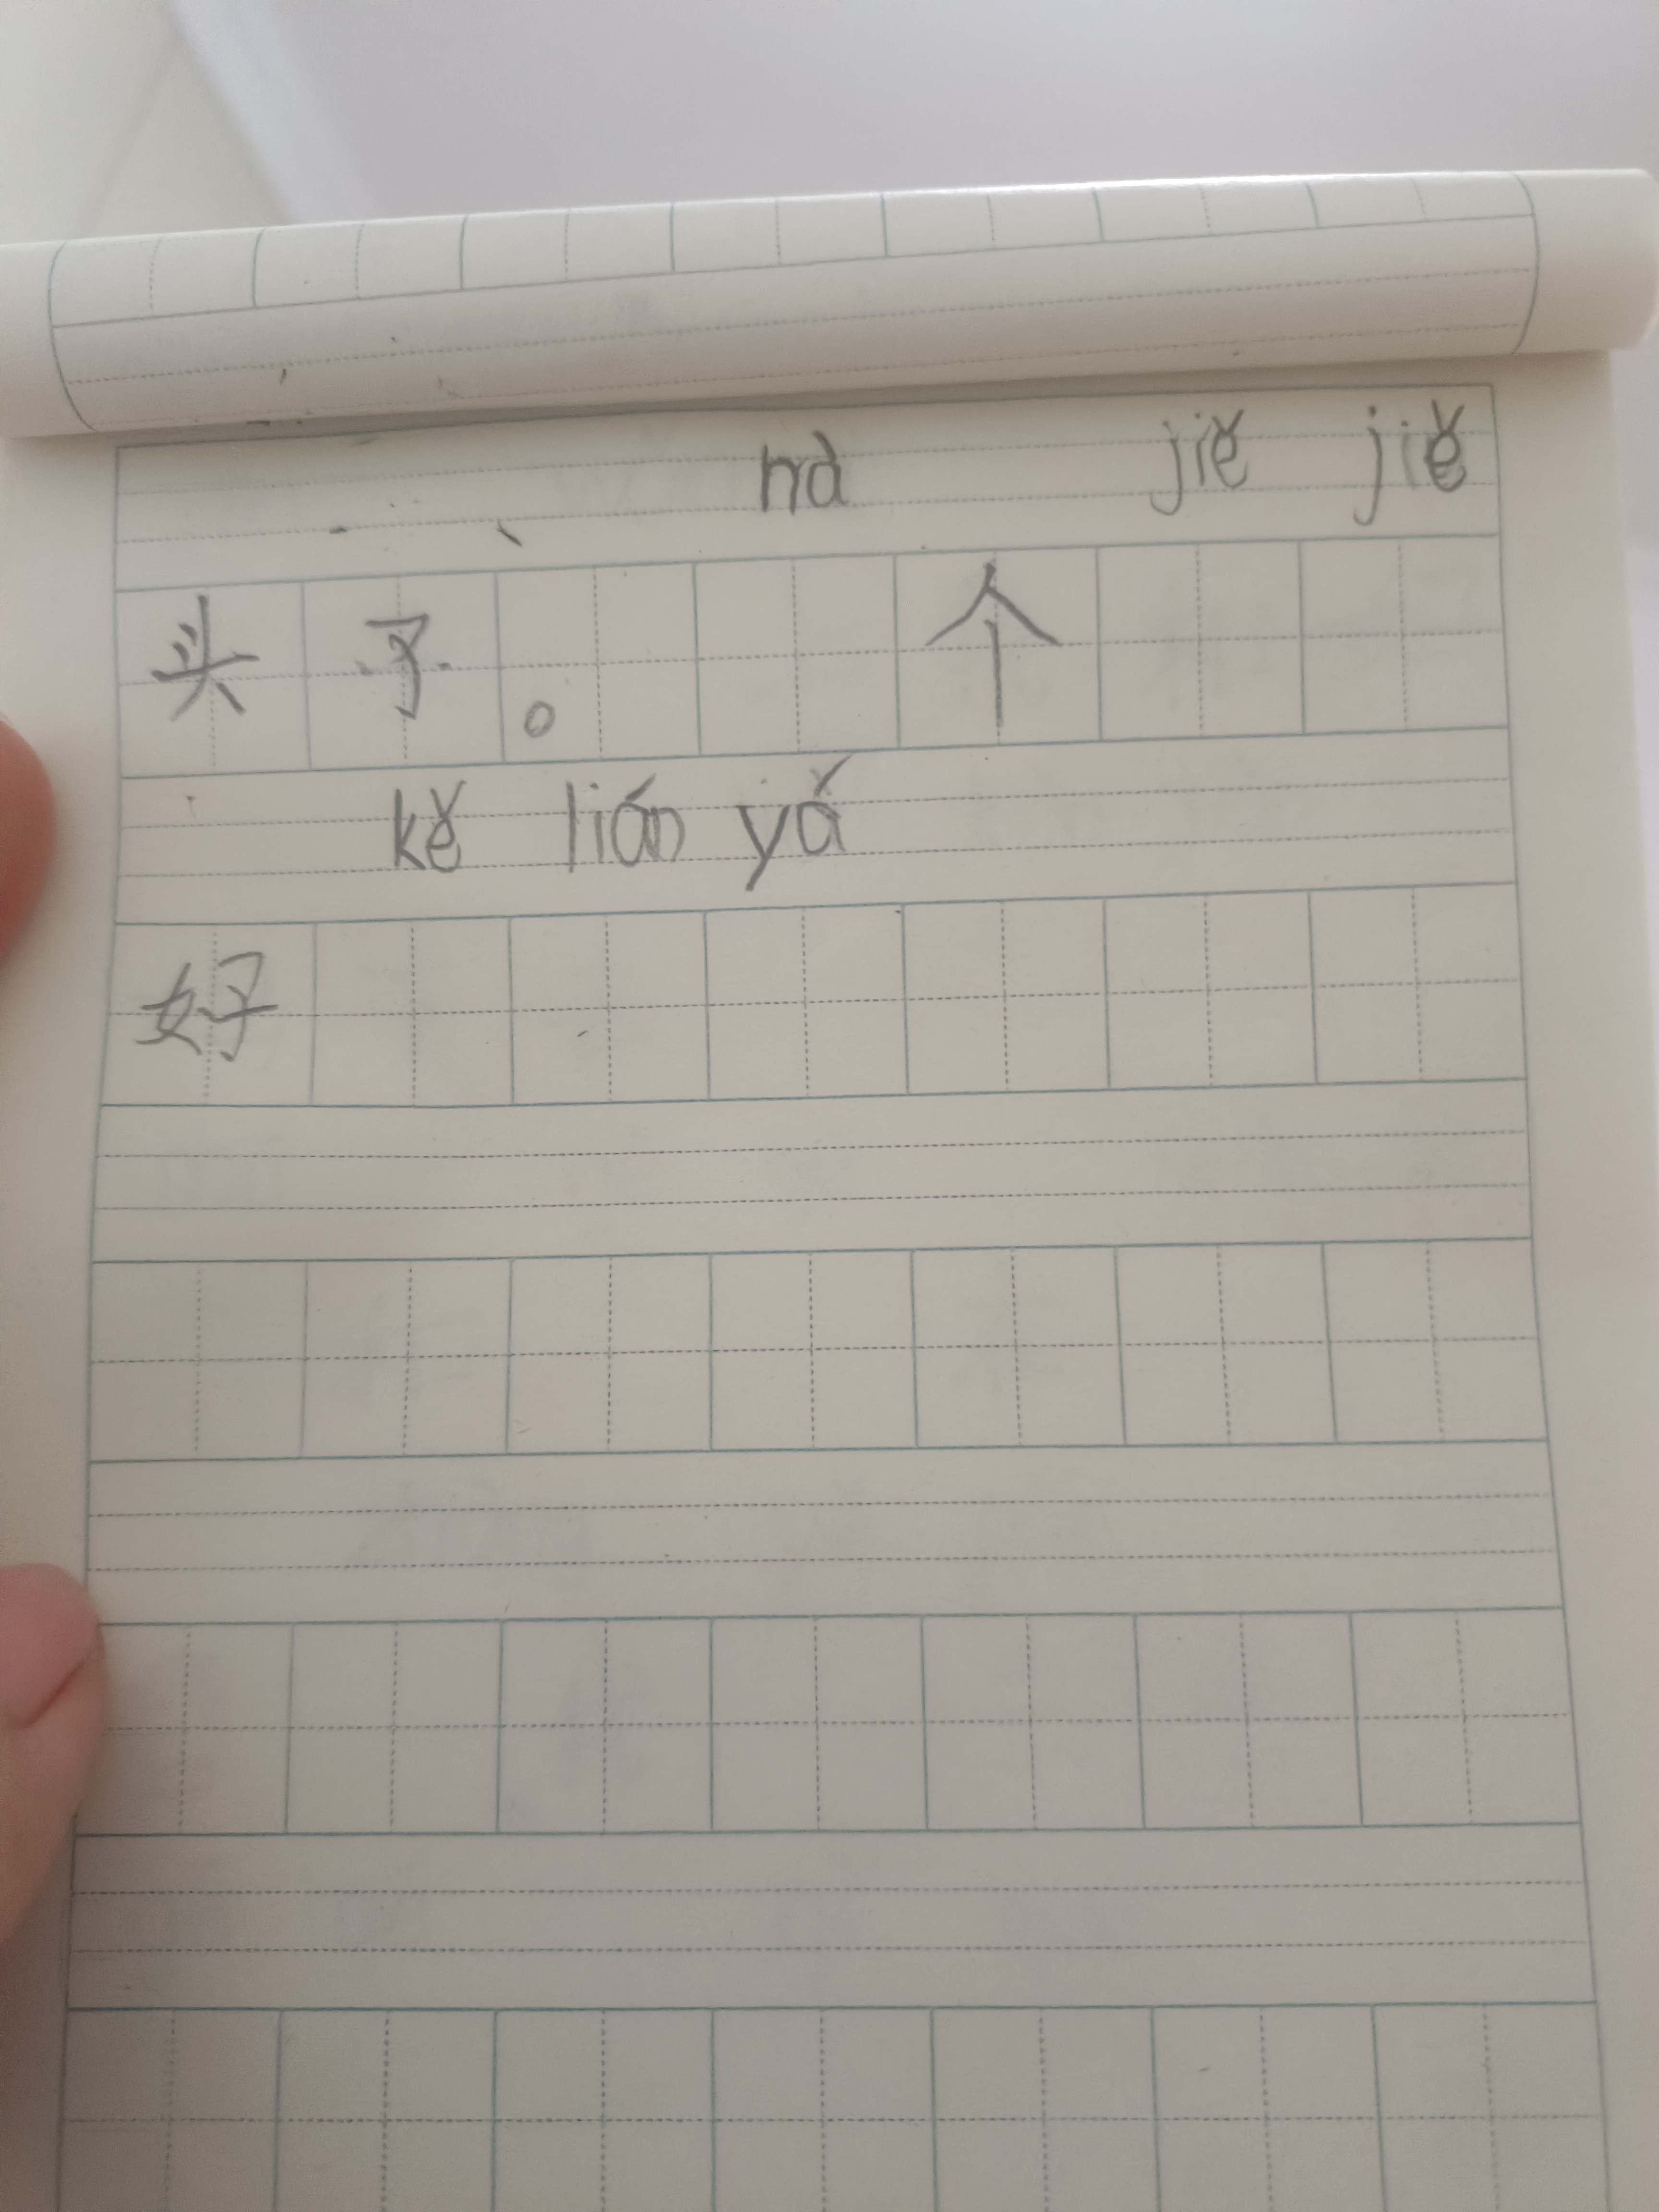 nà jiě jiě
头了。个
kě lián yá
好